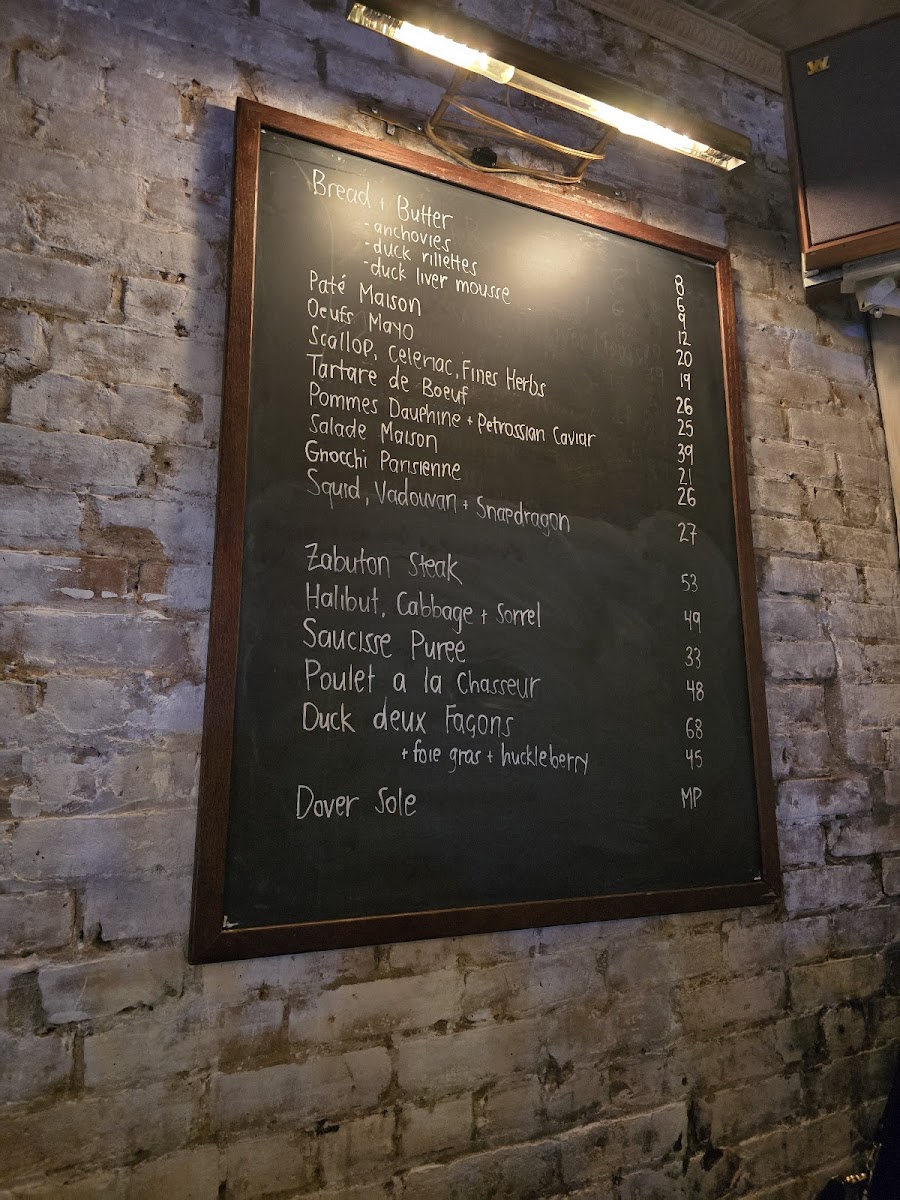 Bread, Butter 8
-anchovies 6
-duck rillettes 9
-duck liver mousse 12
Paté Maison 20
Oeufs Mayo 19
Scallop, Celeriac, Fines Herbs 26
Tartare de Boeuf 25
Pommes Dauphine + Petrossian Caviar 39
Salade Maison 21
Gnocchi Parisienne 26
Squid, Vadouvan + Snapdragon 27
Zabuton Steak 53
Halibut, Cabbage + Sorrel 49
Saucisse Puree 33
Poulet a la Chasseur 48
Duck deux Façons 68
+ foie gras + huckleberry 45
Dover Sole MP